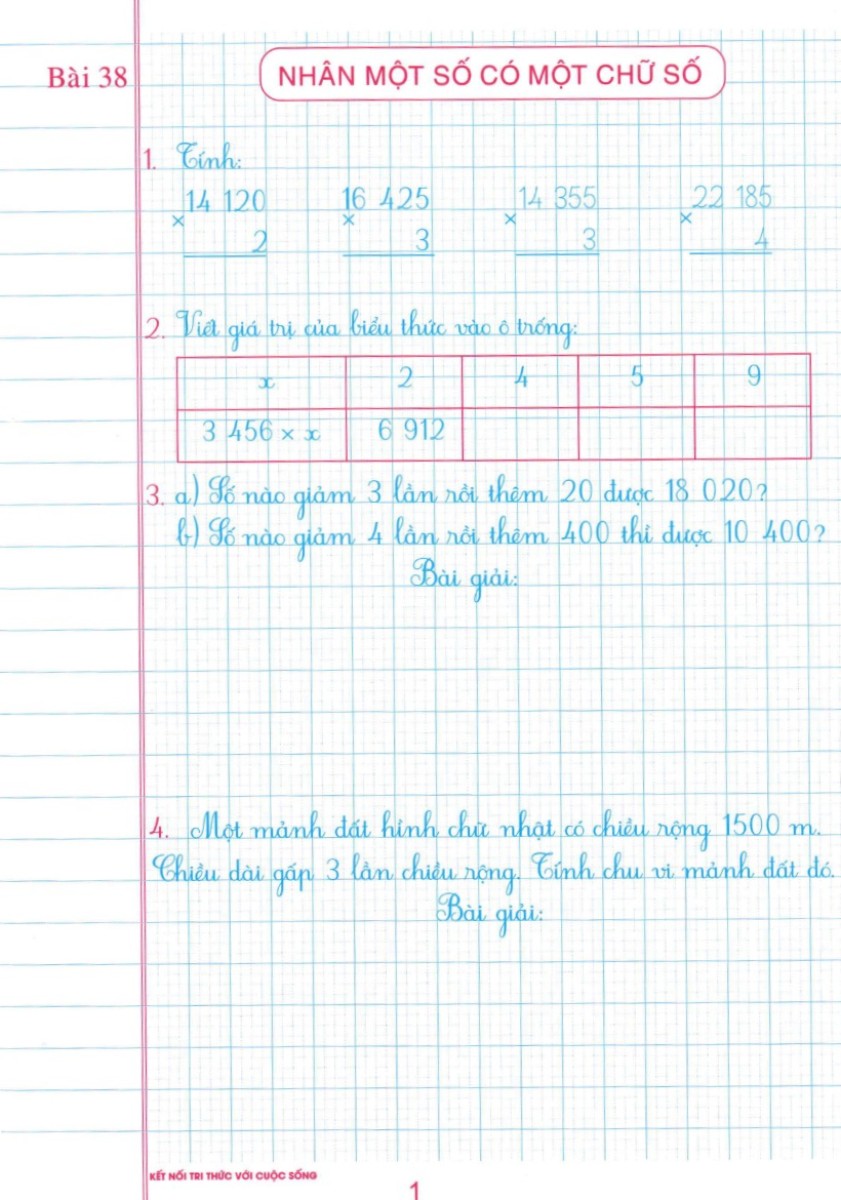 Bài 38
NHÂN MỘT SỐ CÓ MỘT CHỮ SỐ
1. Tính:
14 120 16 425 14 355 22 185
× × × ×
2 3 3 4
2. Viết giá trị của biểu thức vào ô trống:
x 2 4 5 9
3 456 × x 6 912
3. a) Số nào giảm 3 lần rồi thêm 20 được 18 020?
b) Số nào giảm 4 lần rồi thêm 400 thì được 10 400?
Bài giải:
4. Một mảnh đất hình chữ nhật có chiều rộng 1500 m.
Chiều dài gấp 3 lần chiều rộng. Tính chu vi mảnh đất đó.
Bài giải:
KẾT NỐI TRI THỨC VỚI CUỘC SỐNG
1